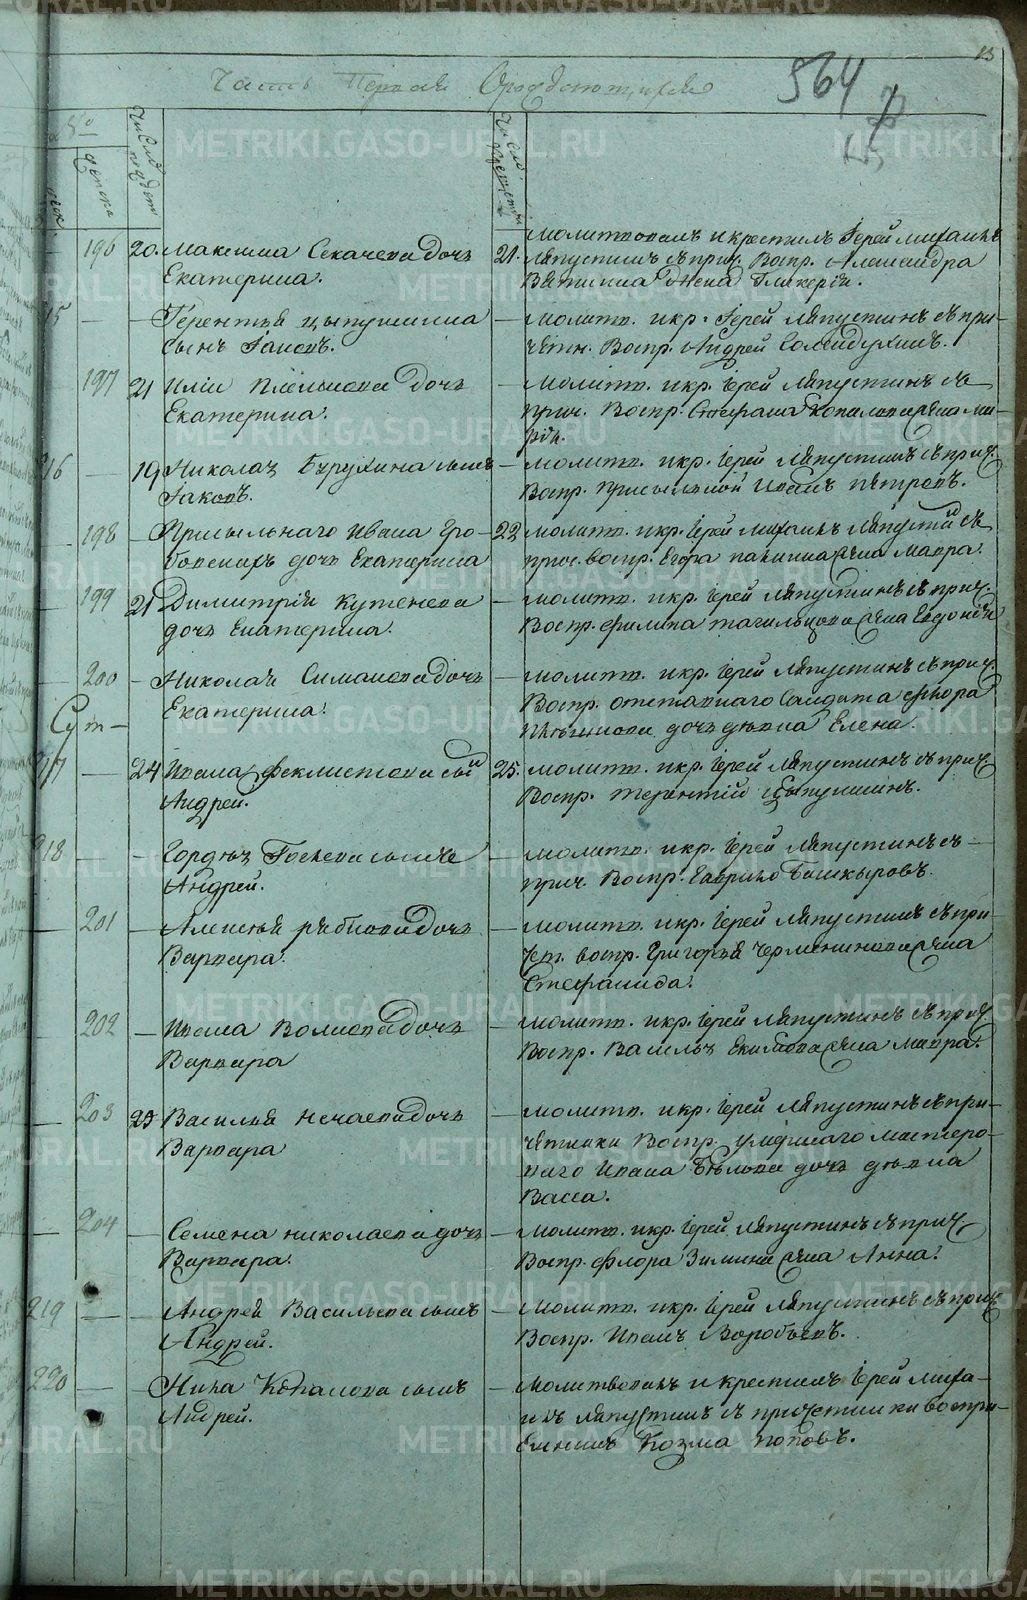 13
Часть Первая О рождающихся
564
№
женска
Число рождет
196 20. Максима Секачева дочь
Екатерина.
21. Молитвовалъ и крестилъ Іерей Михаилъ
Ляпустинъ съ прич. Воспр. Александра
Вяткина жена Гликерія.
215 — — Терентья Цыпушкина
сынъ Іаковъ.
— молитв. и кр. Іерей Ляпустинъ съ при-
четн. Воспр. Андрей
197 21 Иліи дочь
Екатерина.
— молитв. и кр. Іерей Ляпустинъ съ
прич. Воспр. Стефана Копылова жена Ма-
рія.
216 — 19 Николая сынъ
Іаковъ.
— молитв. и кр. Іерей Ляпустинъ съ прич.
Воспр. присыльной Иванъ Петровъ.
198 — Присыльнаго Ивана Гро-
дочь Екатерина
22 молитв. и кр. Іерей Михаилъ Ляпустин съ
прич. воспр. Егора жена Мавра.
199 21 Димитрія Кутенева
дочь Екатерина.
— молитв. и кр. Іерей Ляпустинъ съ прич.
Воспр. Филипа Тагильцова жена Евдокія
200 — Николая Симанова дочь
Екатерина.
— молитв. и кр. Іерей Ляпустинъ съ прич.
Воспр. отставнаго Солдата Флора
дочь девица Елена.
217 — 24 Ивана Феклистова сынъ
Андрей.
25. молитв. и кр. Іерей Ляпустинъ съ прич.
Воспр. Терентій Цыпушкинъ.
218 — — Гордея сынъ
Андрей.
— молитв. и кр. Іерей Ляпустинъ съ
прич. Воспр. Гаврило Башкыровъ.
201 — Алексея Рябкова дочь
Варвара.
— молитв. и кр. Іерей Ляпустинъ съ при-
чет. воспр. Григорья жена
Стефанида.
202 — Ивана Волкова дочь
Варвара
— молитв. и кр. Іерей Ляпустинъ съ прич
Воспр. Василья Екимова жена Мавра.
203 25 Василья Нечаева дочь
Варвара
— молитв. и кр. Іерей Ляпустинъ съ при-
четники Воспр. умершаго мастеро-
ваго Ивана Белова дочь девица
Васса.
204 — Семена Николаева дочь
Варвара.
— Молитв. и кр. Іерей Ляпустинъ съ прич
Воспр. Флора Зимина жена Анна.
219 — — Андрея Васильева сынъ
Андрей.
— Молитв. и кр. Іерей Ляпустинъ съ прич
Воспр. Иванъ Воробьевъ.
220 — — Копалова сынъ
Андрей.
— Молитвовалъ и крестилъ Іерей Миха-
илъ Ляпустинъ съ причетники воспри-
емникъ Козма Поповъ.
METRIKI.GASO-URAL.RU